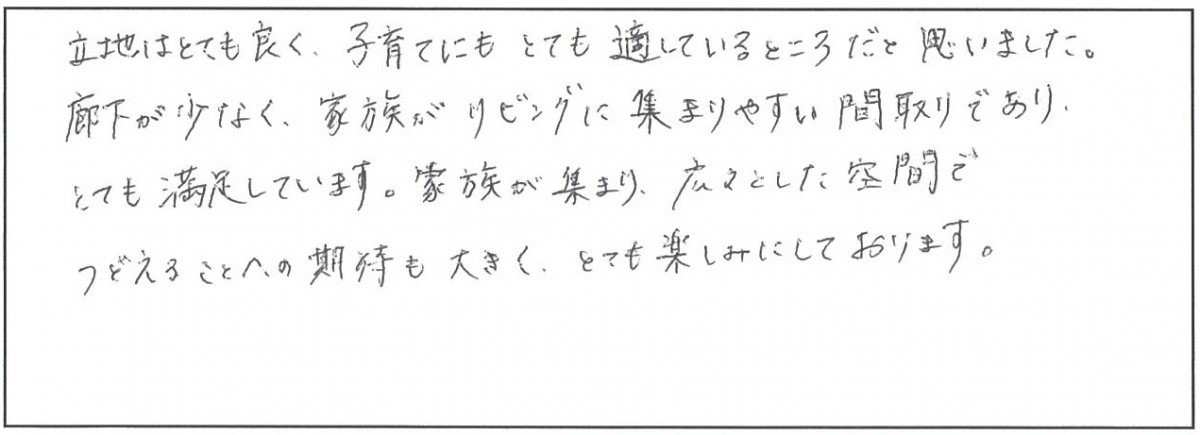 立地はとても良く、子育てにもとても適しているところだと思いました。
廊下が少なく、家族がリビングに集まりやすい間取りであり、
とても満足しています。家族が集まり、広々とした空間で
つどえることへの期待も大きく、とても楽しみにしております。